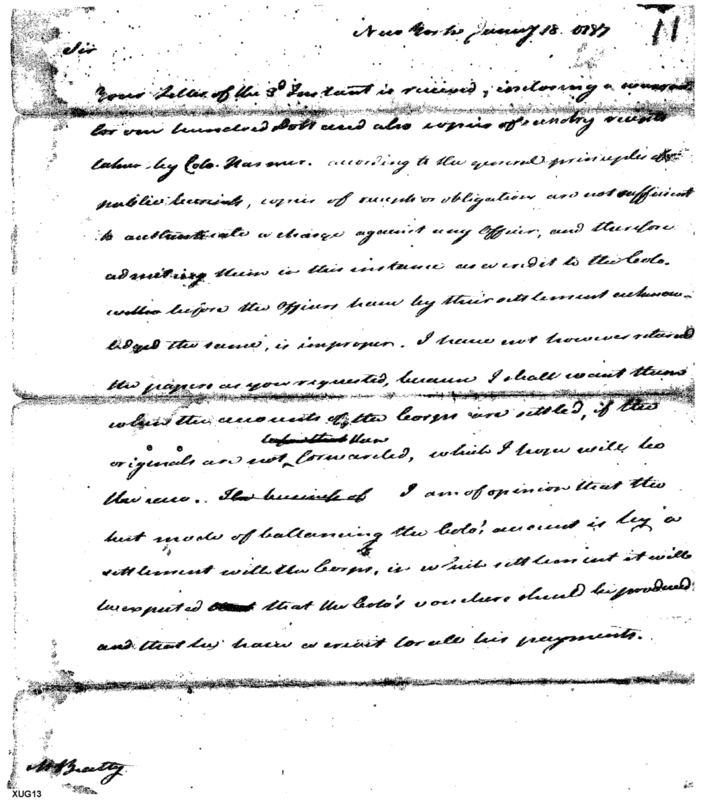 New York Jany 18. 1787
11
Sir
Your Letter of the 3d Instant is received, inclosing a warrant
for one hundred Doll and also copies of sundry receipts
taken by Colo. Harmer. according to the general principles of
public business, copies of receipts or obligations are not sufficient
to authenticate a charge against any Officer, and therefore
admitting them in this instance as a credit to the Colo.
before the Officers have by their settlement acknow-
ledged the same, is improper. I have not however returned
the papers as you requested, because I shall want them
when the accounts of the Corps are settled, if the
before that time
originals are not forwarded, which I hope will be
the case. The business of I am of opinion that the
best mode of ballancing the Colo's. account is by a
settlement with the Corps, in which settlement it will
be expected that the Colo's vouchers should be produced
and that he have a credit for all his payments.
Mr Beatty
XUG13